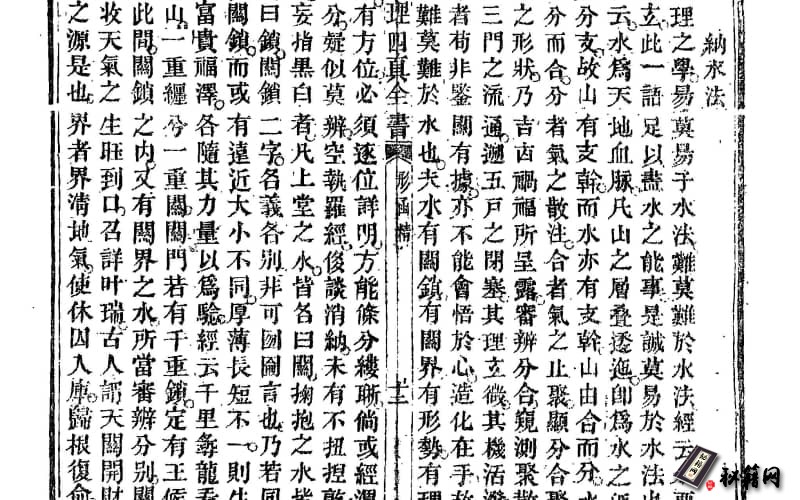 納水法
理之學易莫易于水法難莫難於水法經云
玄此一語足以盡水之能事是誠莫易於水法
云水爲天地血脉凡山之層叠透迤卽爲水之
分支故山有支幹而水亦有支幹山由合而分
分而合分者氣之散注合者氣之止聚顯分合
之形狀乃吉凶禍福所呈露審辨分合窺測聚散
三門之流通遡五戸之閉塞其理玄微其機活潑
者苟非鑒關有據亦不能會悟於心造化在手
難莫難於水也夫水有關鎖有關界有形勢有理
理四真全書
形函精
十三
有方位必須逐位詳明方能條分縷晰倘或經渭
分疑似莫辨空執羅經侈談消納未有不扭捏
妄指黒白者凡上堂之水皆名曰關掬抱之水
曰鎖關鎖二字各義各別非可囫圇言也乃若同
關鎖而或有遠近大小不同厚薄長短不一則
富貴福澤各隨其力量以爲驗經云千里尋龍
山一重纒兮一重關關門若有千重鎖定有王侯
此問關鎖之内又有關界之水所當審辨分别
收天氣之生旺到口召詳叶瑞古人謂天關開財
之源是也界者界清地氣使休囚入庫歸根復命
秘籍网